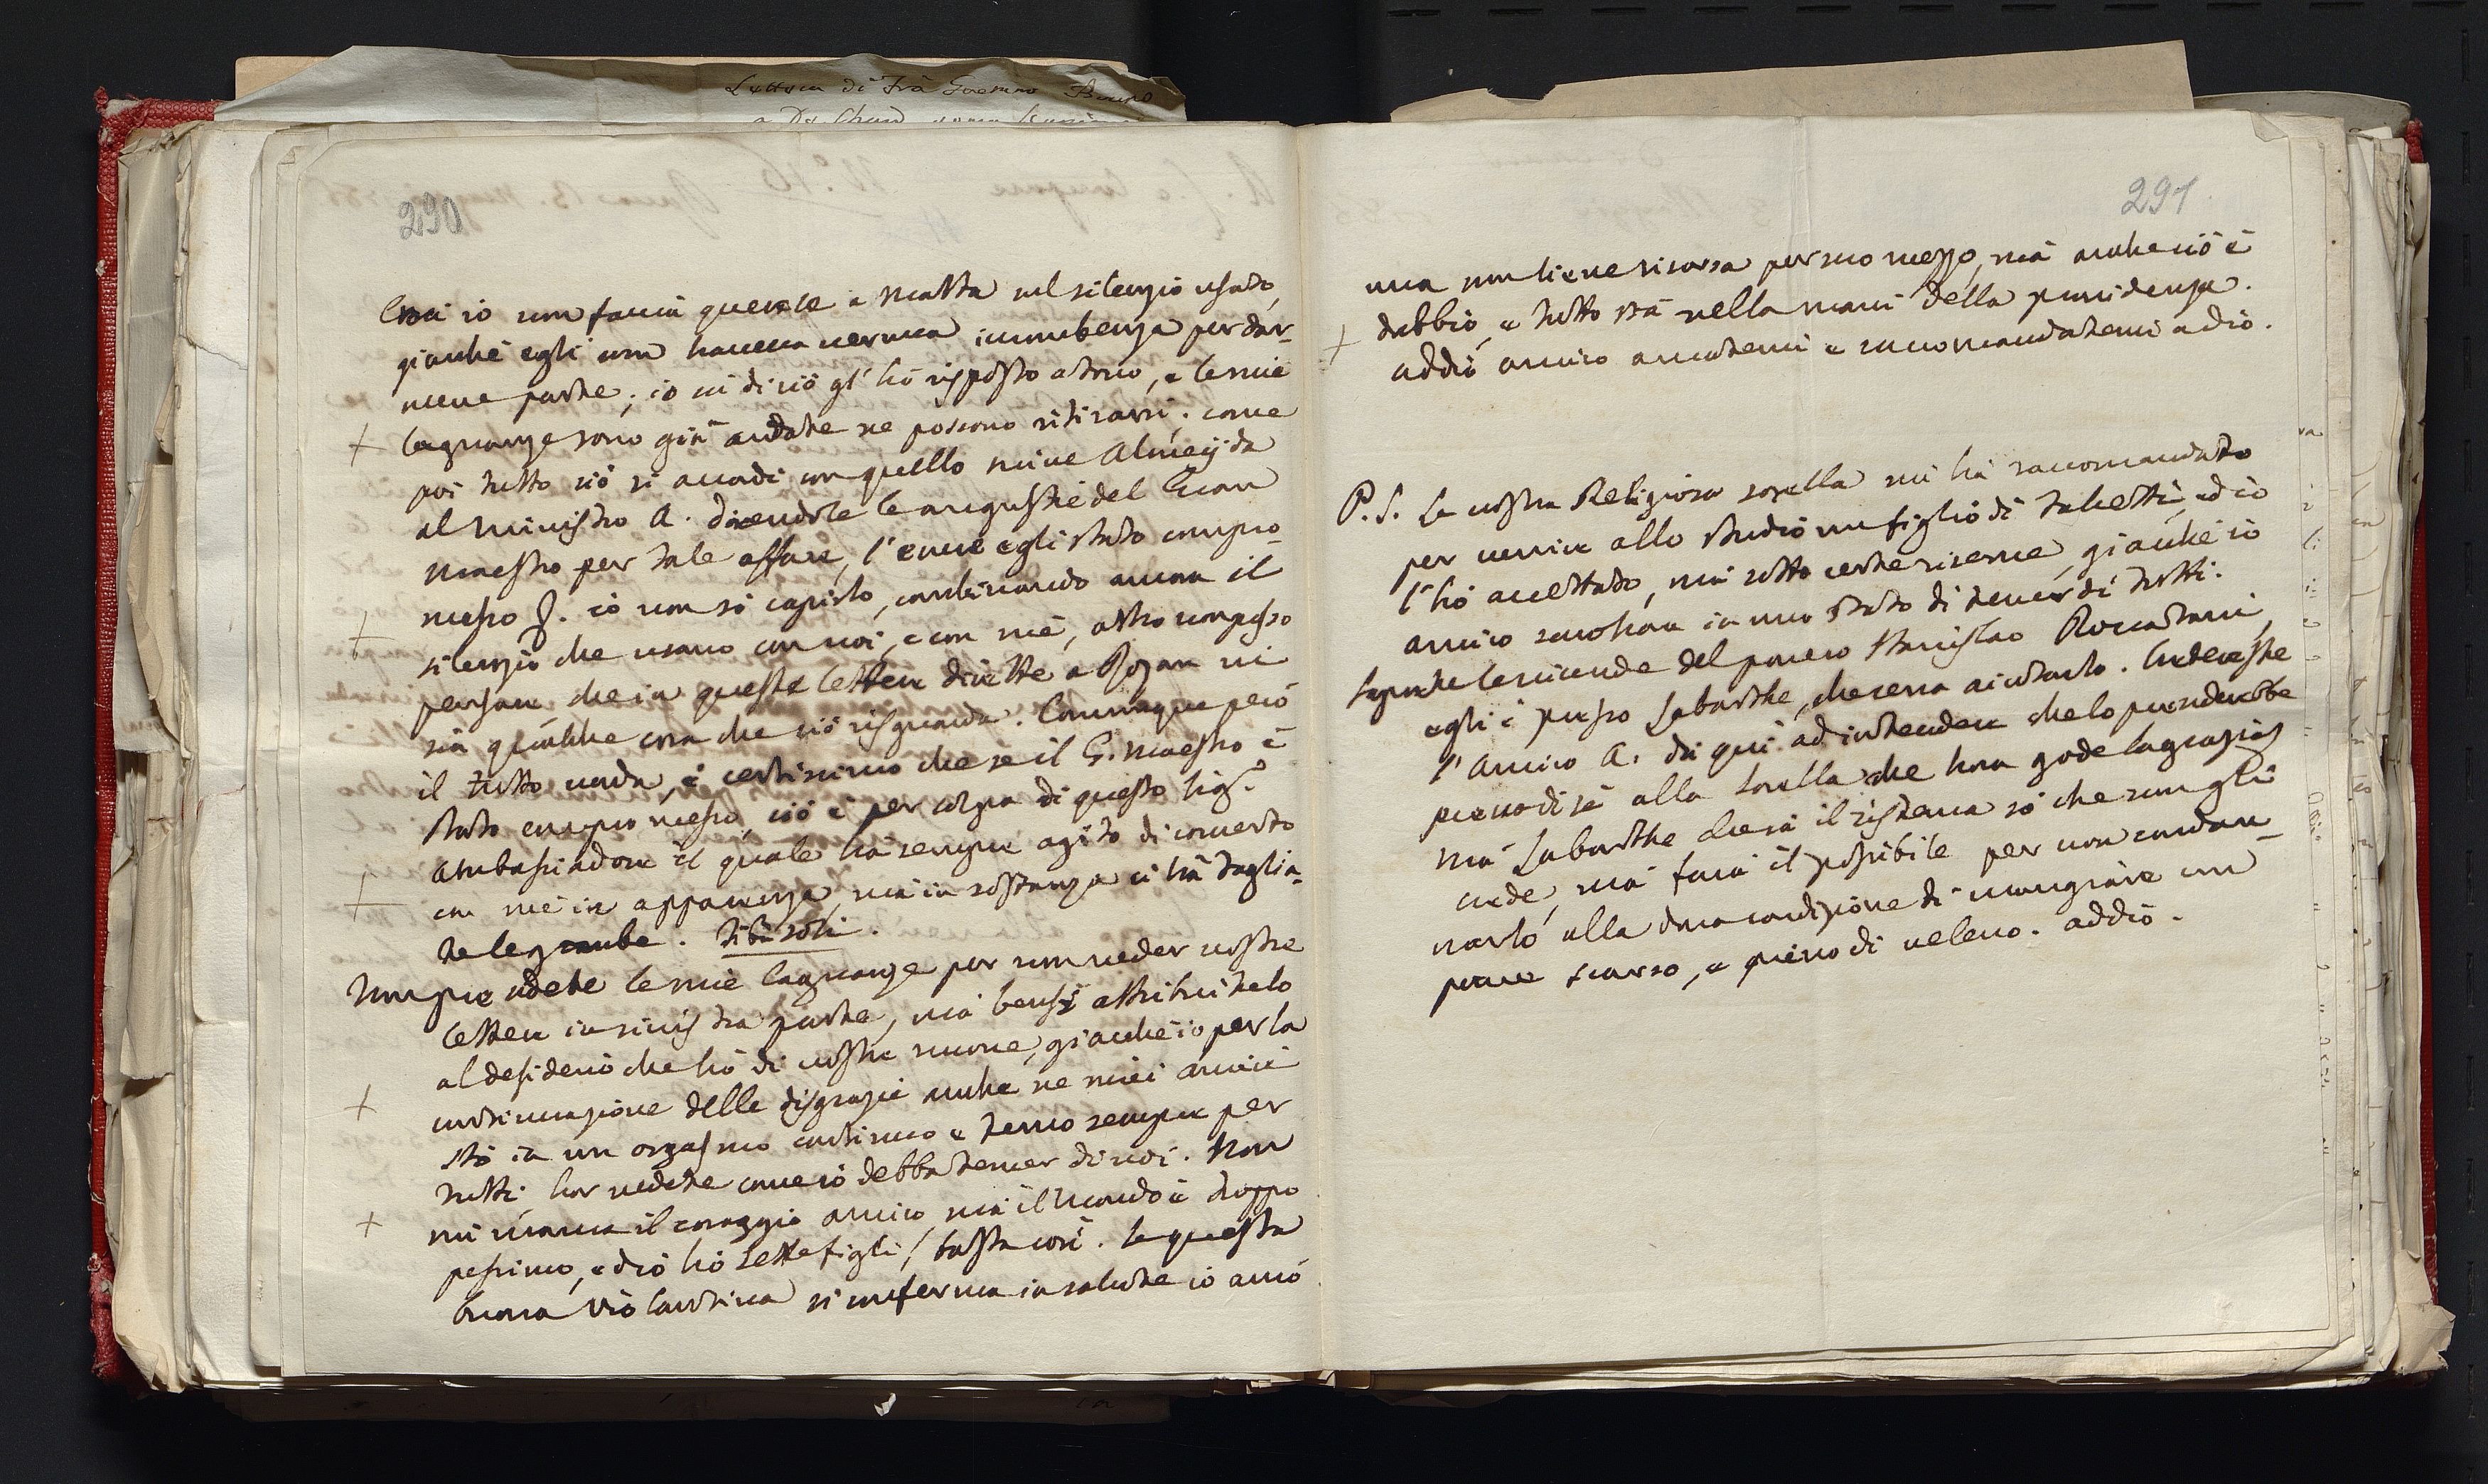 Lettera di Frà Gaetano Bruno
290
Cosa io non faccia querele a Malta sul silenzio usato,
giacché egli non haveva veruna incumbenza per dar-
mene parte; io vi dicio gl'hò rispposto a torno, e le mie
lagnanze sono già andate ne possono ritirarsi. come
poi tutto ciò si accordi con quello scrive Almeyda
al Ministro A. dicendole le angustie del Gran
Maestro per tale affare, l'essere egli stato compro-
messo &. io non sò capirlo, combinando ancora il
silenzio che usano con voi, e con mè, altro non posso
pensare che in queste lettere dirette a Rohan vi
sia qualche cosa che ciò risguarda. Comunque però
il tutto vada, è certissimo che se il G. Maestro è
stato compromesso, ciò è per colpa di questo Sigr.
Ambasciadore il quale hà sempre agito di concerto
con mè in apparenza, mà in sostanza ci hà taglia-
te le gambe. Tibi soli.
Non prendete le mie lagnanze per non veder vostre
lettere in sinistra parte, mà bensi attribuitelo
al desiderio che hò di vostre nuove, giacché io per la
continuazione delle disgrazie anche ne miei amici
stò in un orgasmo continuo e temo sempre per
tutti. hor vedete come io debba temer di voi. Non
mi manca il coraggio amico, mà il Mondo è troppo
pessimo, ed io hò sette figli / basta così. Se questa
buona Violantina si conferma in salute io amo
291
una non lieve risorsa per suo mezzo, mà anche ciò è
dubbio, e tutto stà nelle mani della providenza.
addio amico amatemi e raccomandatemi a dio.
P.S. La vostra Religiosa sorella mi hà raccomandato
per venire allo studio un figlio di Taletti, ed io
l'hò accettato, mà sotto certe riserve, giacché io
amico sono hora in uno stato di temer di tutti.
Saprete le vicende del povero Stanislao Roccatani,
egli è presso Labarthe, che cerca aiutarlo. Credereste
l'amico A. di qui ad intendere che lo prenderebbe
presso di sè alla sorella che hora gode la grazia,
mà Labarthe che sà il sistema sò che non gli
crede, mà farà il possibile per non condan-
narlo alla dura condizione di mangiare un
pane scarso, e pieno di veleno. addio.